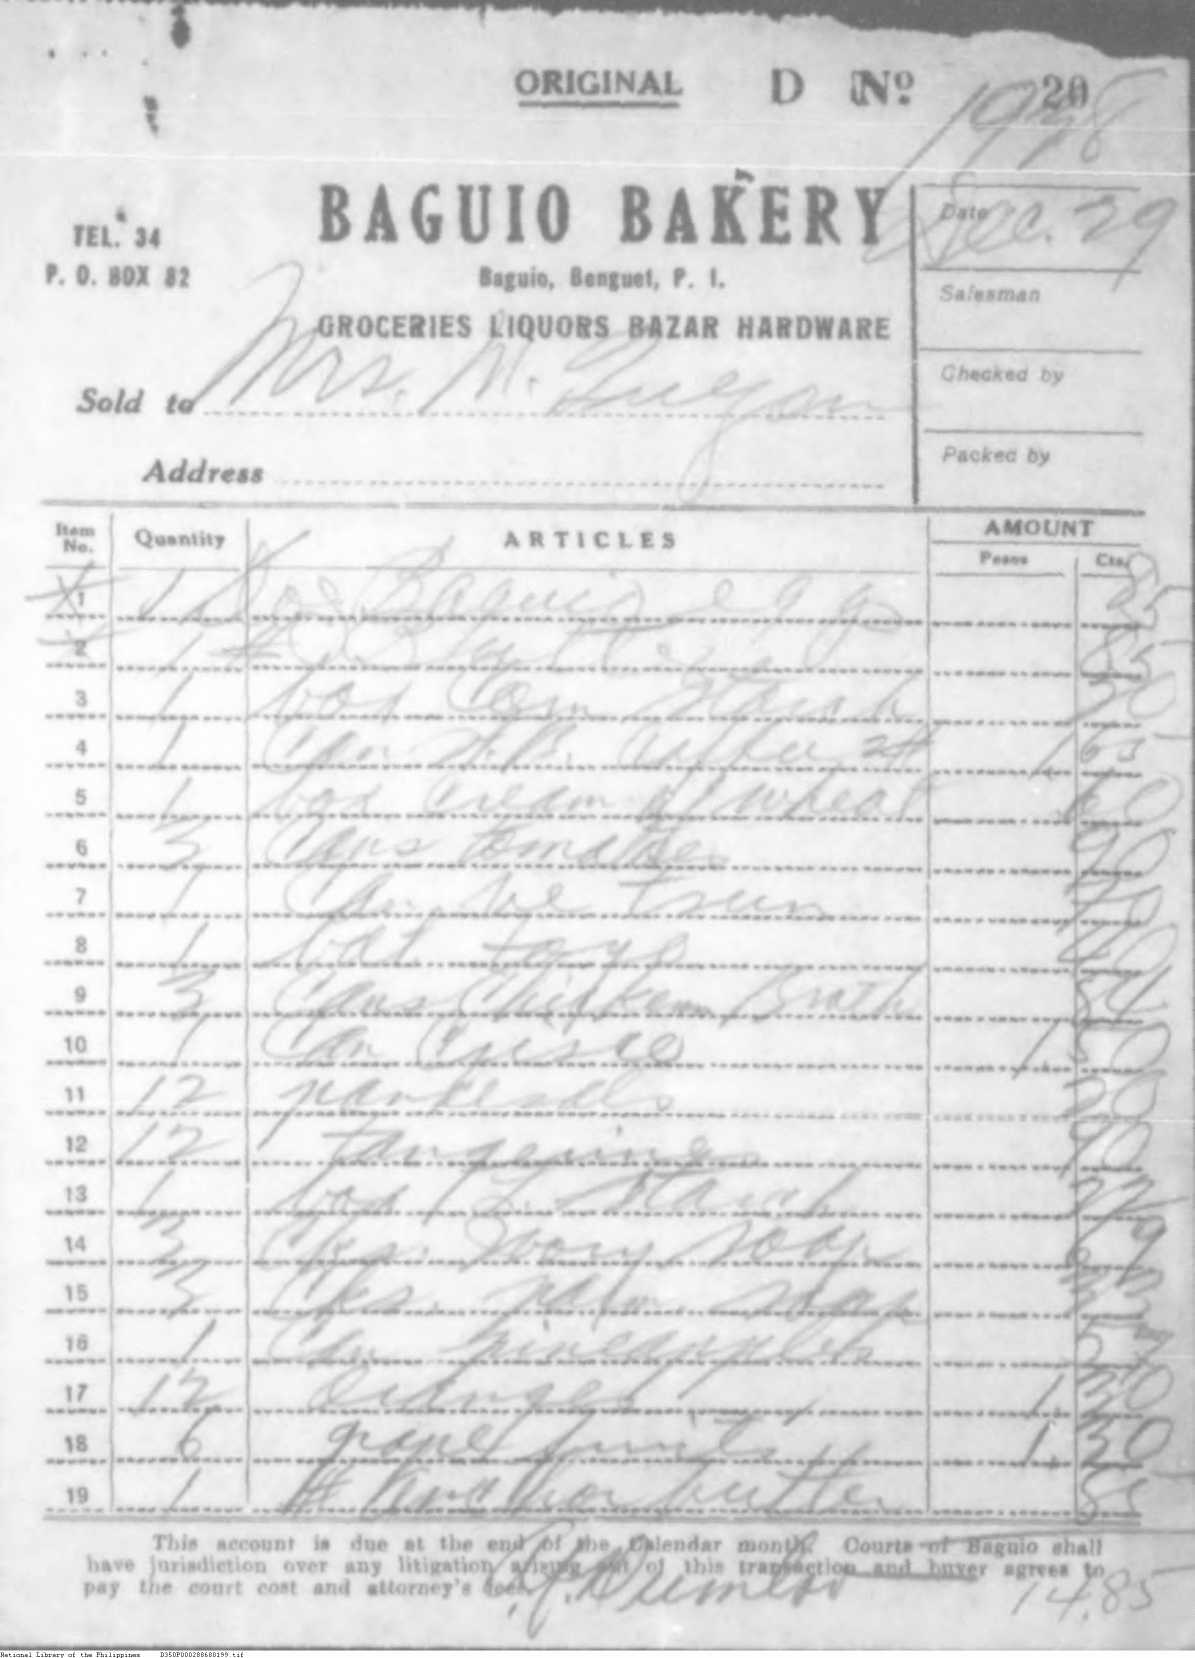 ORIGINAL D Nº 20
1938
TEL. 34 BAGUIO BAKERY Date Dec. 29
P. O. BOX 82 Baguio, Benguet, P. I. Salesman
GROCERIES LIQUORS BAZAR HARDWARE
Checked by
Sold to Mrs. M.
Packed by
Address
Item No. Quantity ARTICLES AMOUNT
Pesos Cts.
1 1 Doz Baguio egg 85
2 1 # 85
3 1 box Corn Starch 30
4 1 Can 2# 1.65
5 1 box Cream of Wheat .60
6 3 Cans tomatoes 90
7 1 Can 70
8 1 toys 40
9 3 Cans Chicken Broth 54
10 1 Can Crisco 1.50
11 12 pandesals 20
12 12 tangerines 90
13 1 box L. Starch 22
14 3 Cks. Ivory soap
15 3 Cks. palm. soap 33
16 1 Can pineapples
17 12 Oranges 1.30
18 6 grape fruits 1.30
19 1 # Anchor butter 85
This account is due at the end of the Calendar month. Courts of Baguio shall
have jurisdiction over any litigation arising out of this transaction and buyer agrees to
pay the court cost and attorney's fees.
14.85
National Library of the Philippines D350P000288688199.tif